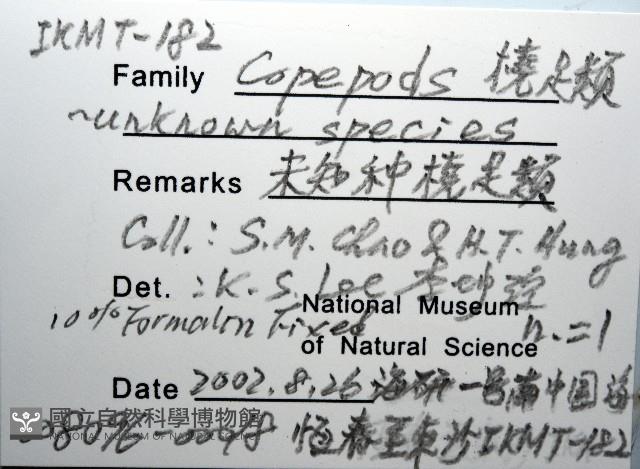 IKMT-182
Family Copepods 橈足類
~unknown species
Remarks 未知种橈足類
Coll.: S.M. Chao & H.T. Hung
Det. : K.S. Lee 李
10% Formalin Fixed n.=1
National Museum
of Natural Science
Date 2002.8.26 海研一号南中国海
恒春至東沙IKMT-182
國立自然科學博物館
NATIONAL MUSEUM OF NATURAL SCIENCE